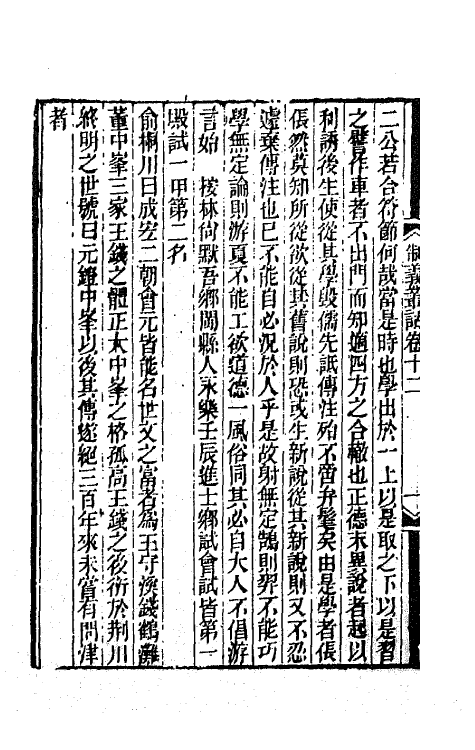 制義叢話卷十二
二公若合符節何哉當是時也學出於一上以是取之下以是習
之譬作車者不出門而知適四方之合轍也正德末異說者起以
利誘後生使從其學毀儒先詆傳注殆不啻弁髦矣由是學者倀
倀然莫知所從欲從其舊說則恐或主新說從其新說則又不忍
遽棄傳注也已不能自必況於人乎是故射無定鵠則羿不能巧
學無定論則游夏不能工欲道德一風俗同其必自大人不倡游
言始　按林尙默吾鄉閩縣人永樂壬辰進士鄉試會試皆第一
殿試一甲第二名
俞桐川曰成宏二朝會元皆能名世文之富者爲王守溪錢鶴灘
董中峯三家王錢之體正大中峯之格孤高王錢之後衍於荆川
終明之世號曰元鐙中峯以後其傳遂絕三百年來未嘗有問津
者